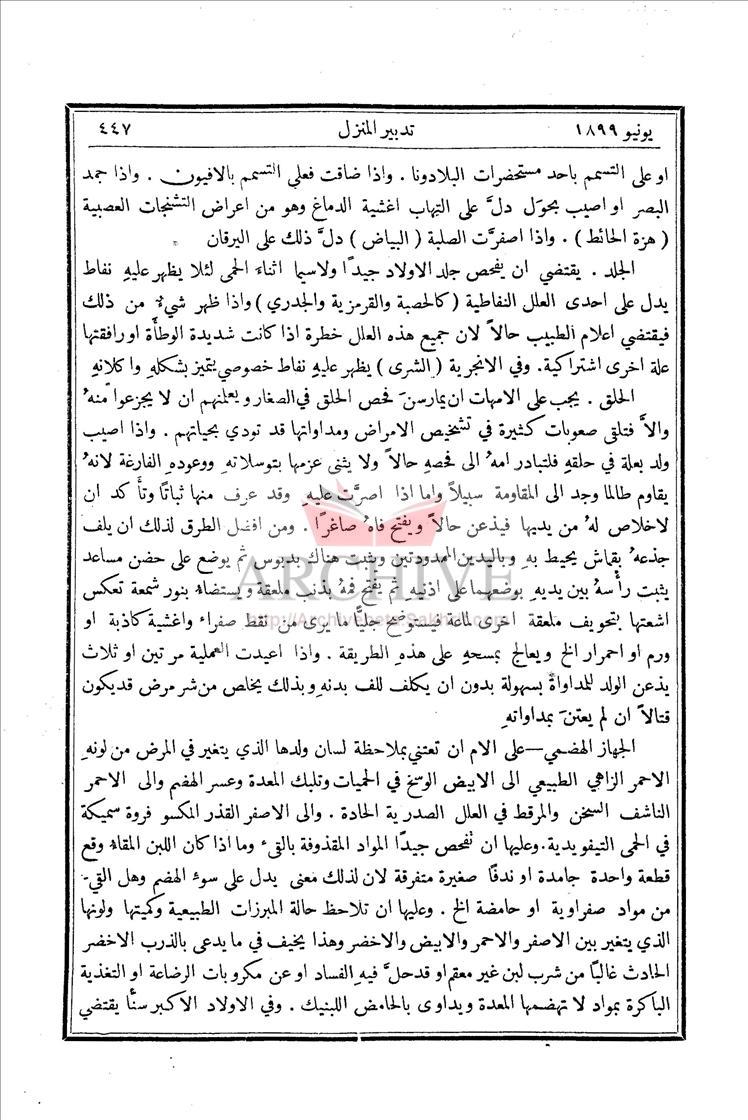 يونيو ١٨٩٩ تدبير المنزل ٤٤٧
او على التسمم باحد مستحضرات البلادونا . واذا ضاقت فعلى التسمم بالافيون . واذا جمد
البصر او اصيب بحوَل دلَّ على التهاب اغشية الدماغ وهو من اعراض التشنجات العصبية
( هزة الحائط ) . واذا اصفرَّت الصلبة ( البياض ) دلَّ ذلك على اليرقان
الجلد . يقتضي ان يفحص جلد الاولاد جيدًا ولاسيما اثناء الحمى لئلا يظهر عليهِ نفاط
يدل على احدى العلل النفاطية ( كالحصبة والقرمزية والجدري ) واذا ظهر شيءٌ من ذلك
فيقتضي اعلام الطبيب حالاً لان جميع هذه العلل خطرة اذا كانت شديدة الوطأة او رافقتها
علة اخرى اشتراكية . وفي الانجرية ( الشرى ) يظهر عليهِ نفاط خصوصي يتميز بشكلهِ واكلانهِ
الحلق . يجب على الامهات ان يمارسنَ فحص الحلق في الصغار ويعلمنهم ان لا يجزعوا منهُ
والاَّ فتلقى صعوبات كثيرة في تشخيص الامراض ومداواتها قد تودي بحياتهم . واذا اصيب
ولد بعلة في حلقهِ فلتبادر امهُ الى فحصهِ حالاً ولا يثنى عزمها بتوسلاتهِ ووعودهِ الفارغة لانهُ
يقاوم طالما وجد الى المقاومة سبيلاً واما اذا اصرَّت عليهِ وقد عرف منها ثباتًا وتأكد ان
لاخلاص لهُ من يديها فيذعن حالاً ويفتح فاهُ صاغرًا . ومن افضل الطرق لذلك ان يلف
جذعهُ بقماش يحيط بهِ وباليدين الممدودتين ويثبت هناك بدبوس ثم يوضع على حضن مساعد
يثبت رأسهُ بين يديهِ بوضعهما على اذنيهِ ثم يفتح فمهُ بذنب ملعقة ويستضاءُ بنور شمعة تعكس
اشعتها بتجويف ملعقة اخرى لماعة فيستوضح جليًّا ما يرى من نقط صفراء واغشية كاذبة او
ورم او احمرار الخ ويعالج بمسحهِ على هذهِ الطريقة . واذا اعيدت العملية مرتين او ثلاث
يذعن الولد للمداواة بسهولة بدون ان يكلف للف بدنهِ وبذلك يخلص من شر مرض قد يكون
قتالاً ان لم يعتنَ بمداواتهِ
الجهاز الهضمي — على الام ان تعتني بملاحظة لسان ولدها الذي يتغير في المرض من لونهِ
الاحمر الزاهي الطبيعي الى الابيض الوسخ في الحميات وتلبك المعدة وعسر الهضم والى الاحمر
الناشف السخن والمرقط في العلل الصدرية الحادة . والى الاصفر القذر المكسو فروة سميكة
في الحمى التيفويدية . وعليها ان تفحص جيدًا المواد المقذوفة بالقيء وما اذا كان اللبن المقاءُ وقع
قطعة واحدة جامدة او ندفًا صغيرة متفرقة لان لذلك معنى يدل على سوء الهضم وهل القيء
من مواد صفراوية او حامضة الخ . وعليها ان تلاحظ حالة المبرزات الطبيعية وكميتها ولونها
الذي يتغير بين الاصفر والاحمر والابيض والاخضر وهذا يخيف في ما يدعى بالذرب الاخضر
الحادث غالبًا من شرب لبن غير معقم او قد حلَّ فيهِ الفساد او عن مكروبات الرضاعة او التغذية
الباكرة بمواد لا تهضمها المعدة ويداوى بالحامض اللبنيك . وفي الاولاد الاكبر سنًّا يقتضي
ARCHIVE